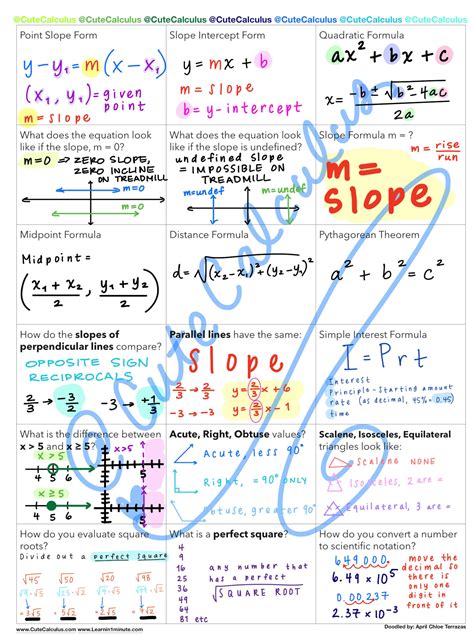 @CuteCalculus @CuteCalculus @CuteCalculus @CuteCalculus @CuteCalculus @CuteCalculus @CuteCalculus
Point Slope Form
y - y₁ = m(x - x₁)
(x₁, y₁) = given
point
m = slope
Slope Intercept Form
y = mx + b
m = slope
b = y-intercept
Quadratic Formula
ax² + bx + c
x = -b ± √b² - 4ac
2a
What does the equation look
like if the slope, m = 0?
m=0 ⇒ ZERO SLOPE,
ZERO INCLINE
ON TREADMILL
m=0
m=0
What does the equation look
like if the slope is undefined?
undefined slope
= IMPOSSIBLE ON
TREADMILL
m=undef
m=undef
Slope Formula m = ?
m = rise
run
m =
slope
Midpoint Formula
Midpoint =
(x₁ + x₂ / 2, y₁ + y₂ / 2)
Distance Formula
d = √(x₂-x₁)² + (y₂-y₁)²
Pythagorean Theorem
a² + b² = c²
How do the slopes of
perpendicular lines compare?
OPPOSITE SIGN
RECIPROCALS
2/3 → -3/2
-3 → +1/3
Parallel lines have the same:
slope
2/3 → 2/3
y = 2/3 x + 6
-3 → -3
y = 2/3 x - 1
Simple Interest Formula
I = Prt
Interest
Principle - Starting amount
rate (as decimal, 45% = 0.45)
time
What is the difference between
x > 5 and x ≥ 5?
x>5
x>5
4 5 6
x≥5
4 5 6
Acute, Right, Obtuse values?
Acute, less 90°
Right, = 90° ONLY
Obtuse, greater 90°
Scalene, Isosceles, Equilateral
triangles look like:
Scalene NONE =
Isosceles, 2 are =
Equilateral, 3 are =
How do you evaluate square
roots?
Divide out a perfect square
√45 √50 √20 √98
3√5 5√2 2√5 7√2
What is a perfect square?
4
9
16
25
36
49
64
81 etc
any number that
has a perfect
√SQUARE ROOT
How do you convert a number
to scientific notation?
649000.
6.49 x 10⁵
0.00237
2.37 x 10⁻³
move the
decimal so
there is
only one
digit in
front of it
©CuteCalculus
www.CuteCalculus.com www.Learnin1minute.com
Doodled by: April Chloe Terrazas